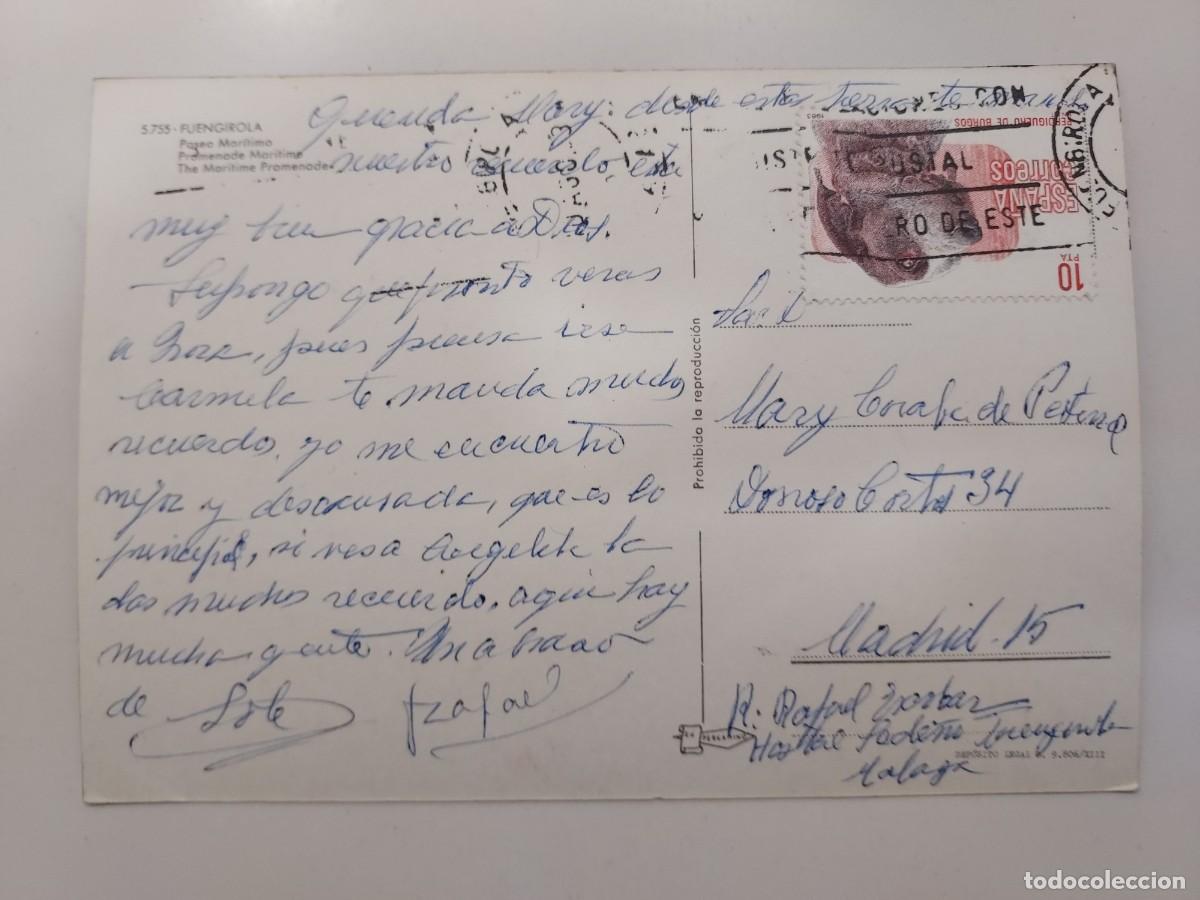 5.755 - FUENGIROLA
Paseo Marítimo
Promenade Maritime
The Maritime Promenade
Querida Mary: desde esta tierra te
nuestro recuerdo, esta
muy bien gracia a Dios.
Supongo que pronto veras
a Nora, pues piensa irse
Carmela te manda muchos
recuerdo, yo me encuentro
mejor y descansada, que es lo
principal, si ves a Angelita la
das muchos recuerdo, aqui hay
mucha gente. Un abrazo
de Sole Rafael
Prohibido la reproducción
CON
POSTAL
RO DE ESTE
FUENGIROLA
1983
PERDIGUERO DE BURGOS
ESPAÑA
correos
10
PTA
Mary de
Donoso Cortes 34
Madrid - 15
R: Rafael
Hostal Fuengirola
Malaga
DEPÓSITO LEGAL B. 9.806/XIII
todocoleccion